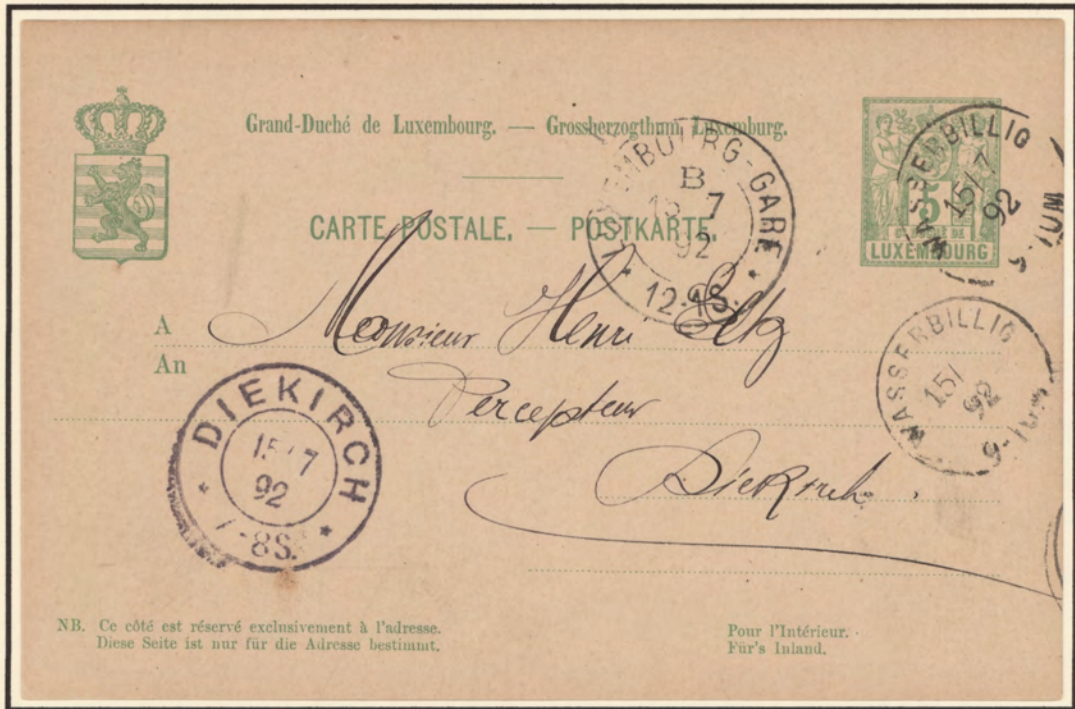 Grand-Duché de Luxembourg. — Grossherzogthum Luxemburg.
CARTE POSTALE. — POSTKARTE.
5
LUXEMBOURG
WASSERBILLIG
15/7
92
LUXEMBOURG-GARE
B
15 7
92
WASSERBILLIG
15/
92
A
An
Monsieur Henri
Percepteur
Diekirch.
DIEKIRCH
15/7
92
7-8S.
NB. Ce côté est réservé exclusivement à l'adresse.
Diese Seite ist nur für die Adresse bestimmt.
Pour l'Intérieur.
Für's Inland.